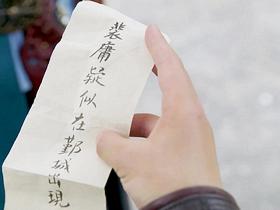 裴庸疑似在鄞城出現